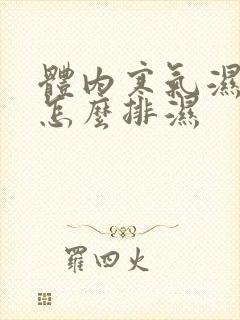 體內寒氣濕
怎麼排濕
羅四火